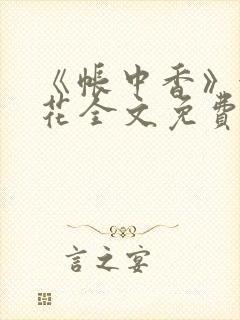 《帐中香》
花全文免费
言之宴